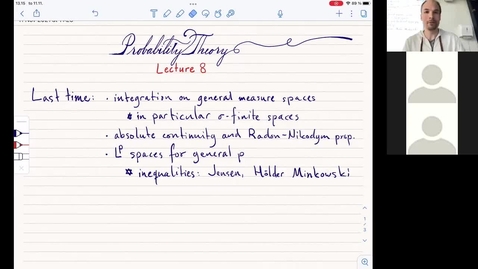 13.15 to 11.11.
89 %
Probability Theory
Lecture 8
Last time: · integration on general measure spaces
in particular σ-finite spaces
· absolute continuity and Radon-Nikodym prop.
· Lᵖ spaces for general p
inequalities: Jensen, Hölder Minkowski